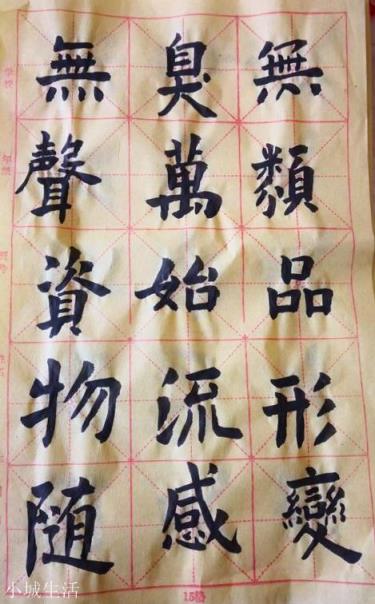 無臭無
聲萬類
資始品
物流形
随感變
小城生活